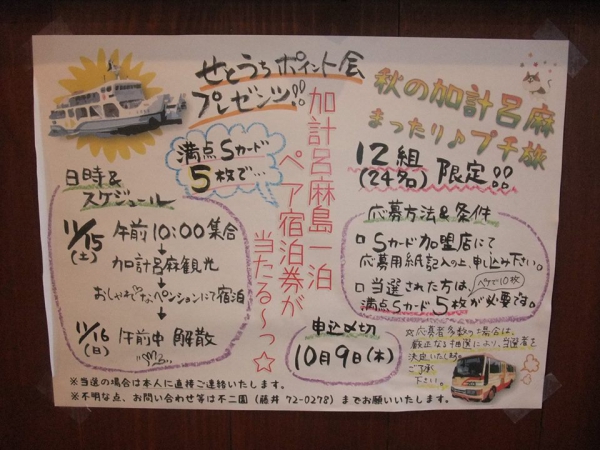 せとうちポイント会
プレゼンツ!!
秋の加計呂麻
まったり♪プチ旅
満点Sカード
5枚で…
加計呂麻島一泊
ペア宿泊券が
当たる〜っ☆
12組
(24名)限定!!
日時&
スケジュール
11/15
(土)
午前10:00集合
↓
加計呂麻観光
↓
おしゃれなペンションにて宿泊
↓
11/16
(日)
午前中 解散
応募方法&条件
□ Sカード加盟店にて
応募用紙記入の上、申し込み下さい。
□ 当選された方は、
ペアで10枚
満点Sカード5枚が必要です。
申込〆切
10月9日(木)
※応募者多数の場合は、
厳正なる抽選により、当選者を
決定いたします。
ご了承
下さい。
※当選の場合は本人に直接ご連絡いたします。
※不明な点、お問い合わせ等は不二園(藤井 72-0278)までお願いいたします。